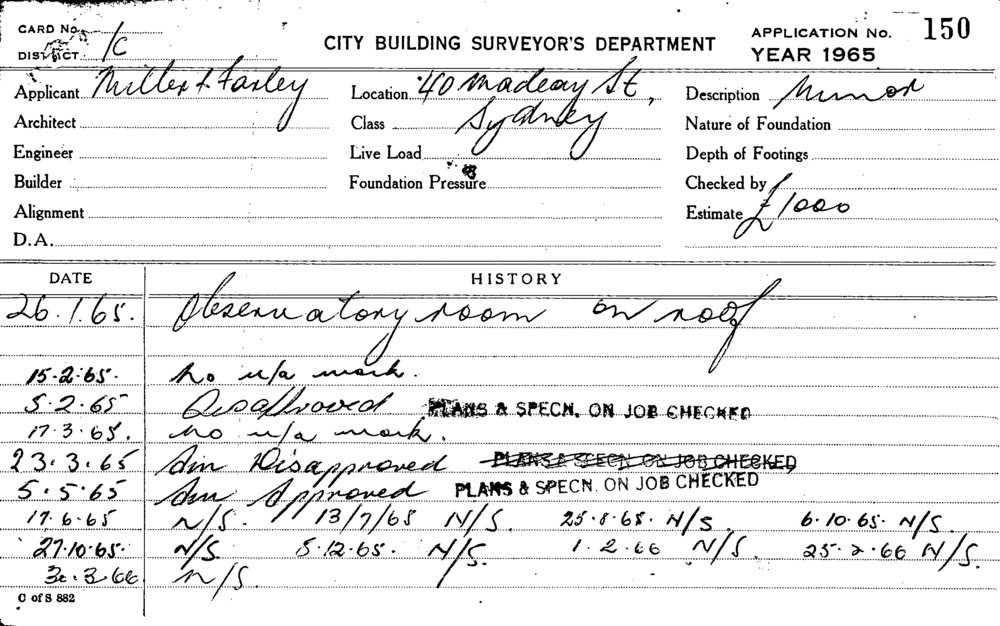 CARD No.
DISTRICT 1C
CITY BUILDING SURVEYOR'S DEPARTMENT
APPLICATION No. 150
YEAR 1965
Applicant Miller & Farley Location 40 Macleay St, Description Minor
Architect Class Sydney Nature of Foundation
Engineer Live Load Depth of Footings
Builder Foundation Pressure Checked by
Alignment Estimate £1000
D.A.
DATE HISTORY
26.1.65. Observatory room on roof
15.2.65. No u/a work.
5.2.65 Disapproved PLANS & SPECN. ON JOB CHECKED
17.3.65. No u/a work.
23.3.65 Am Disapproved PLANS & SPECN. ON JOB CHECKED
5.5.65 Am Approved PLANS & SPECN. ON JOB CHECKED
17.6.65 N/S. 13/7/65 N/S. 25.8.65. N/S. 6.10.65. N/S.
27.10.65. N/S. 8.12.65. N/S. 1.2.66 N/S. 25.2.66 N/S.
3.66 N/S.
C of S 882